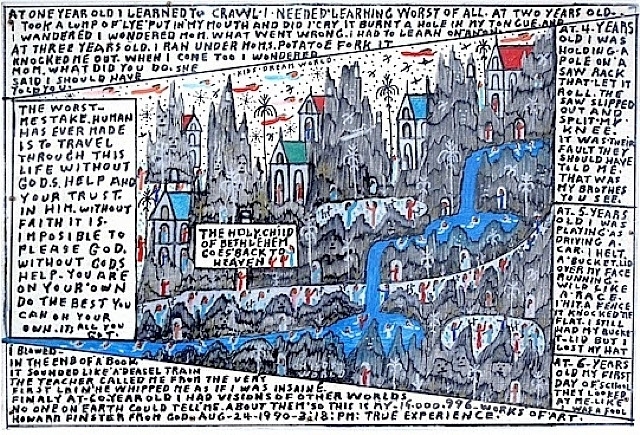 AT ONE YEAR OLD I LEARNED TO CRAWL. I NEEDED LEARNING WORST OF ALL. AT TWO YEARS OLD.
I TOOK A LUMP OF LYE PUT IN MY MOUTH AND DID I CRY. IT BURNT A HOLE IN MY TONGUE AND
WANDERED I WONDERED MOM. WHAT WENT WRONG. I HAD TO LEARN ON
AT THREE YEARS OLD. I RAN UNDER MOM,S. POTATOE FORK IT
KNOCKED ME OUT. WHEN I COME TOO I WONDERED
MOM, WHAT DID YOU DO. SHE
SAID I SHOULD HAVE
TOLD YOU.
KIDS DREAM WORLD.
THE WORST-
MESTAKE. HUMAN
HAS EVER MADE
IS TO TRAVEL
THROUGH THIS
LIFE WITHOUT
GOD,S. HELP AND
YOUR TRUST.
IN HIM. WITHOUT
FAITH IT IS.
IMPOSIBLE TO
PLEASE GOD.
WITHOUT GODS
HELP. YOU ARE
ON YOUR OWN
DO THE BEST YOU
CAN ON YOUR
OWN. ITS ALL YOU
GOT.
THE HOLY CHILD
OF BETHLEHEM
GOES BACK TO
HEAVEN
AT. 4. YEARS
OLD I WAS
HOLDING A
POLE ON A
SAW RACK
THAT LET IT
ROLL. THE
SAW SLIPPED
OUT AND
SPLIT MY
KNEE.
IT WAS THEIR
FAULT THEY
SHOULD HAVE
TOLD ME.
THAT WAS
MY BROTHES
YOU SEE.
AT. 5. YEARS
OLD I WAS
PLAYING. A
DRIVING. A
CAR. I HELT.
A BUCKET. LID
OVER MY FACE
RUNNING.
WILD LIKE
A RACE.
I HIT A FENCE
IT KNOCKED ME
FLAT. I STILL
HAD MY BUCKE
T-LID BUT I
LOST MY HAT
AT. 6-YEARS
OLD MY FIRST
DAY OF SCHOOL
THEY LOOKED
AT ME. LIKE
I WAS A FOOL
I BLOWED-
IN THE END OF A BOOK.
IT SOUNDED LIKE A DEASEL TRAIN
THE TEACHER CALLED ME FROM THE VERY
FIRST LAIN HE WHIPPED ME AS IF I WAS INSAINE.
FINALY AT YEAR OLD I HAD VISIONS OF OTHER WORLDS
NO ONE ON EARTH COULD TELL ME. ABOUT THEM SO THIS IS MY. 15.000.996. WORKS OF ART.
HOWARD FINSTER FROM GOD. AUG-24-1990-3:18: PM: TRUE EXPERIENCE.